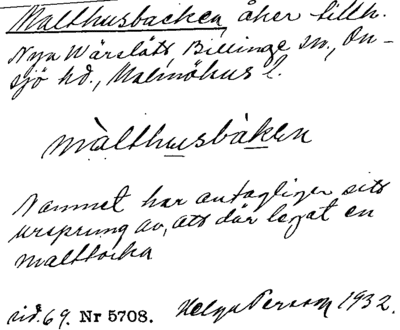 Malthusbacken, åker tillh.
Nya Wärslätt, Billinge sn., On-
sjö hd., Malmöhus l.
màlthusbàken
Namnet har antagligen sitt
ursprung av, att där legat en
malttorka
sid. 69. Nr 5708. Helga Persson 1932.